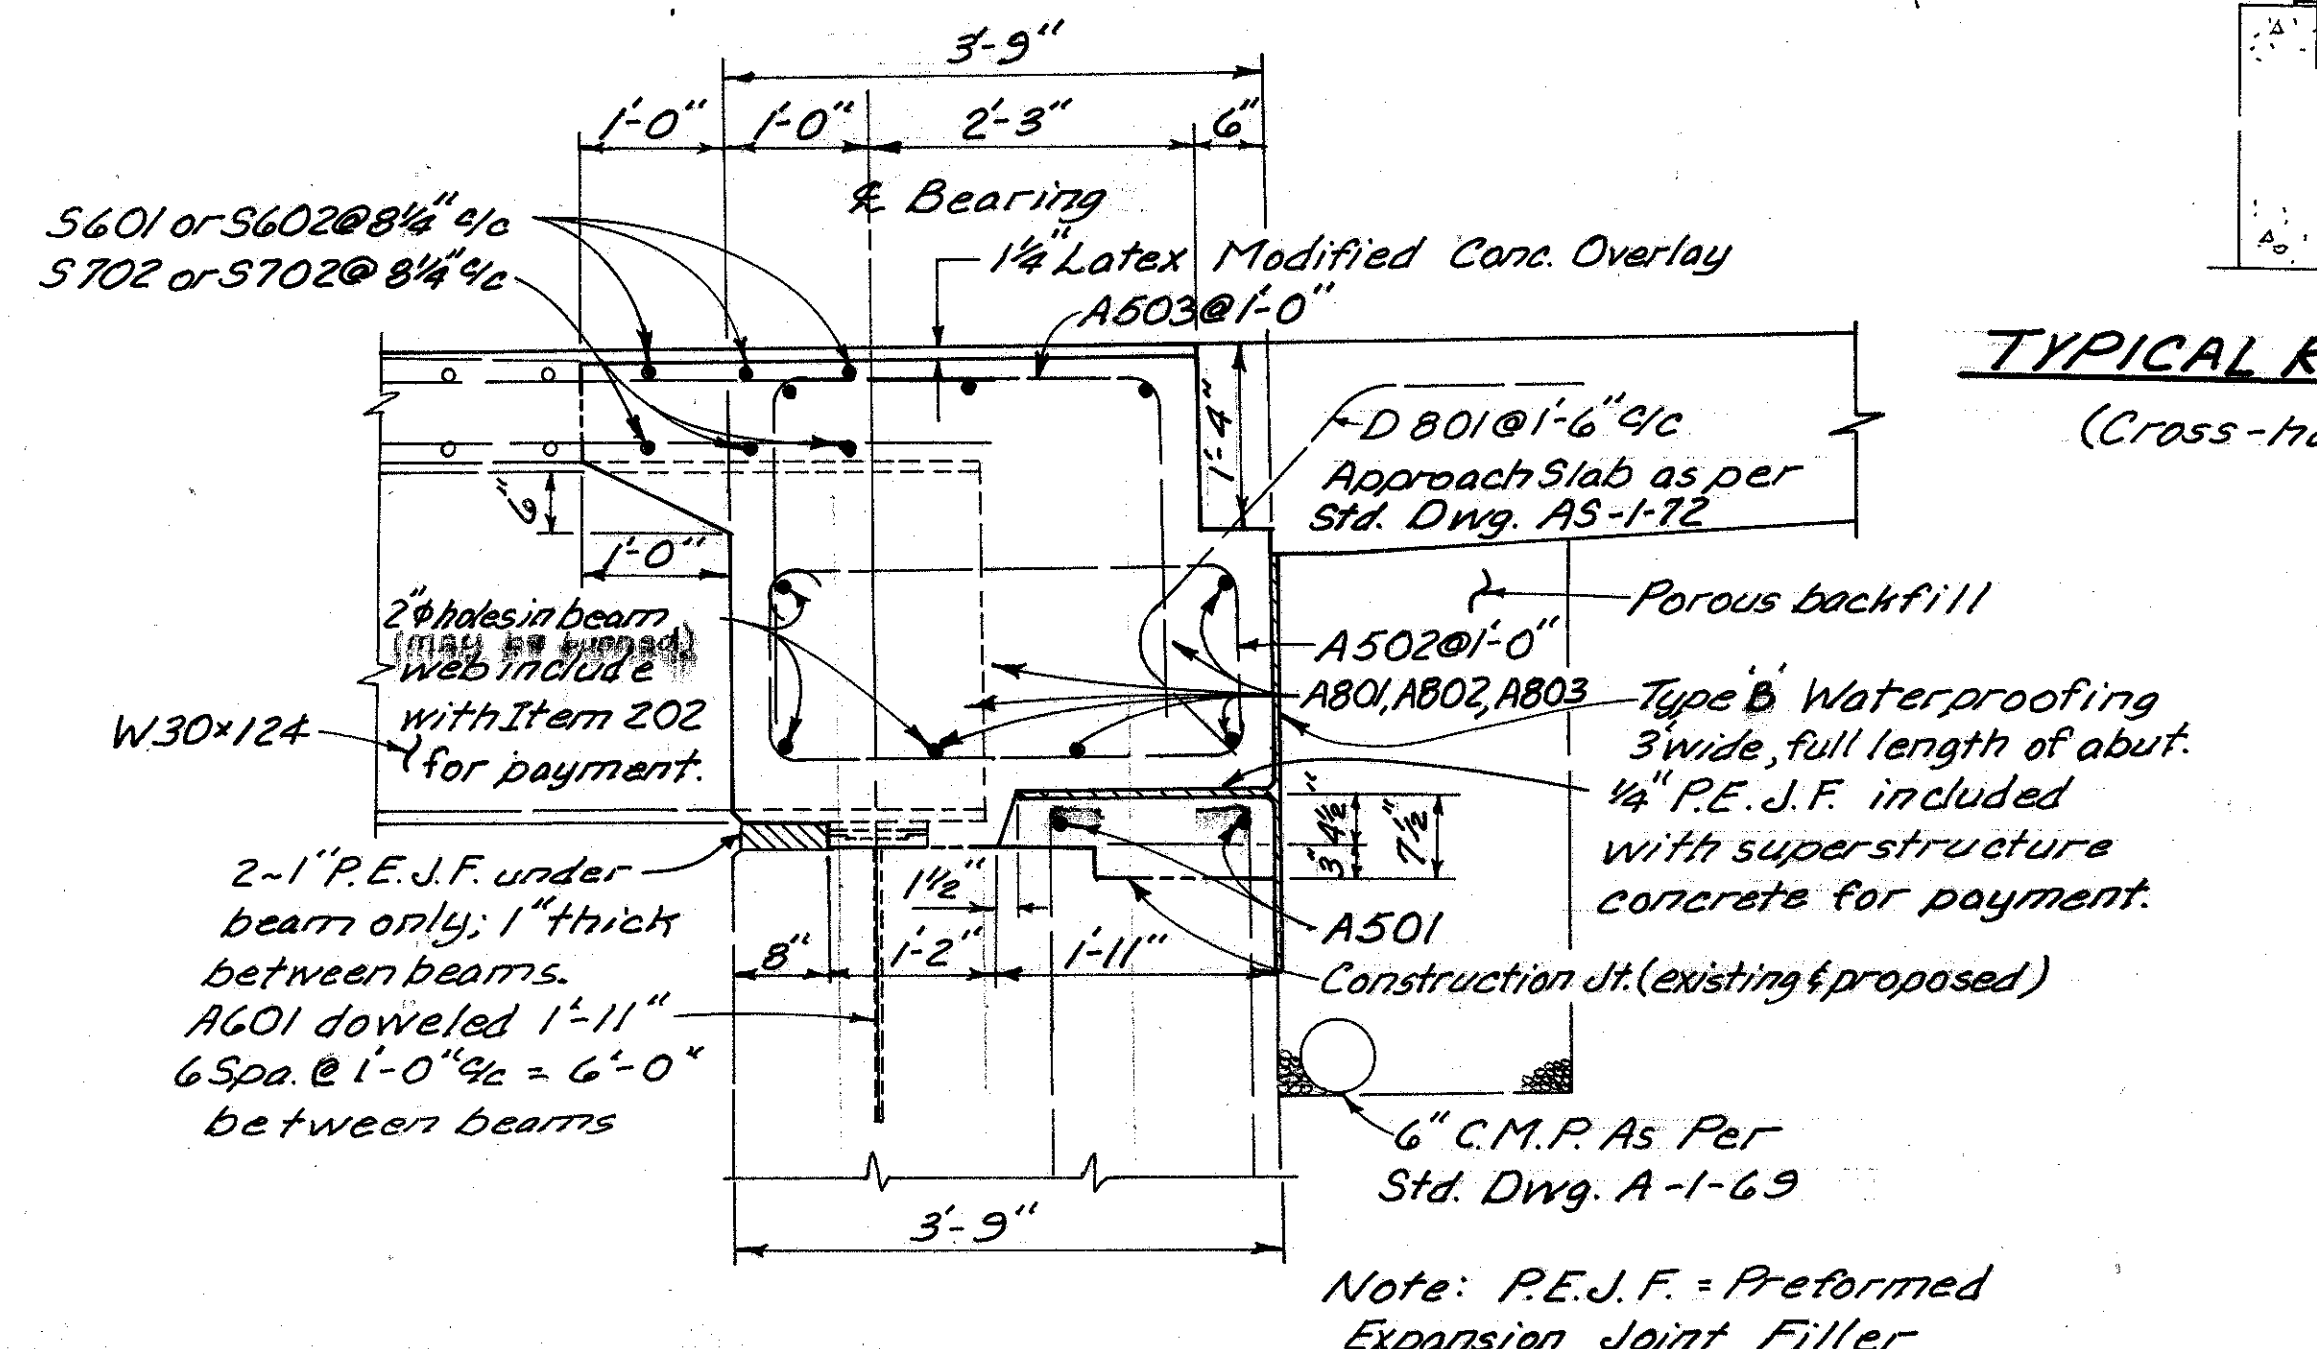 3'-9"
1'-0" 1'-0" 2'-3" 6"
℄ Bearing
S601 or S602 @ 8¼" c/c
S702 or S702 @ 8¼" c/c
1¼" Latex Modified Conc. Overlay
A503 @ 1'-0"
TYPICAL
(Cross-ha
1'-4"
D801 @ 1'-6" c/c
Approach Slab as per
Std. Dwg. AS-1-72
6"
1'-0"
2"⌀ holes in beam
(may be burned)
web include
with Item 202
for payment.
W30×124
Porous backfill
A502 @ 1'-0"
A801, A802, A803
Type 'B' Waterproofing
3' wide, full length of abut.
¼" P.E.J.F. included
with superstructure
concrete for payment.
3" 4½" 7½"
2~1" P.E.J.F. under
beam only; 1" thick
between beams.
1½"
8" 1'-2" 1'-11"
A501
Construction Jt. (existing & proposed)
A601 doweled 1'-11"
6 Spa. @ 1'-0" c/c = 6'-0"
between beams
6" C.M.P. As Per
Std. Dwg. A-1-69
3'-9"
Note: P.E.J.F. = Preformed
Expansion Joint Filler